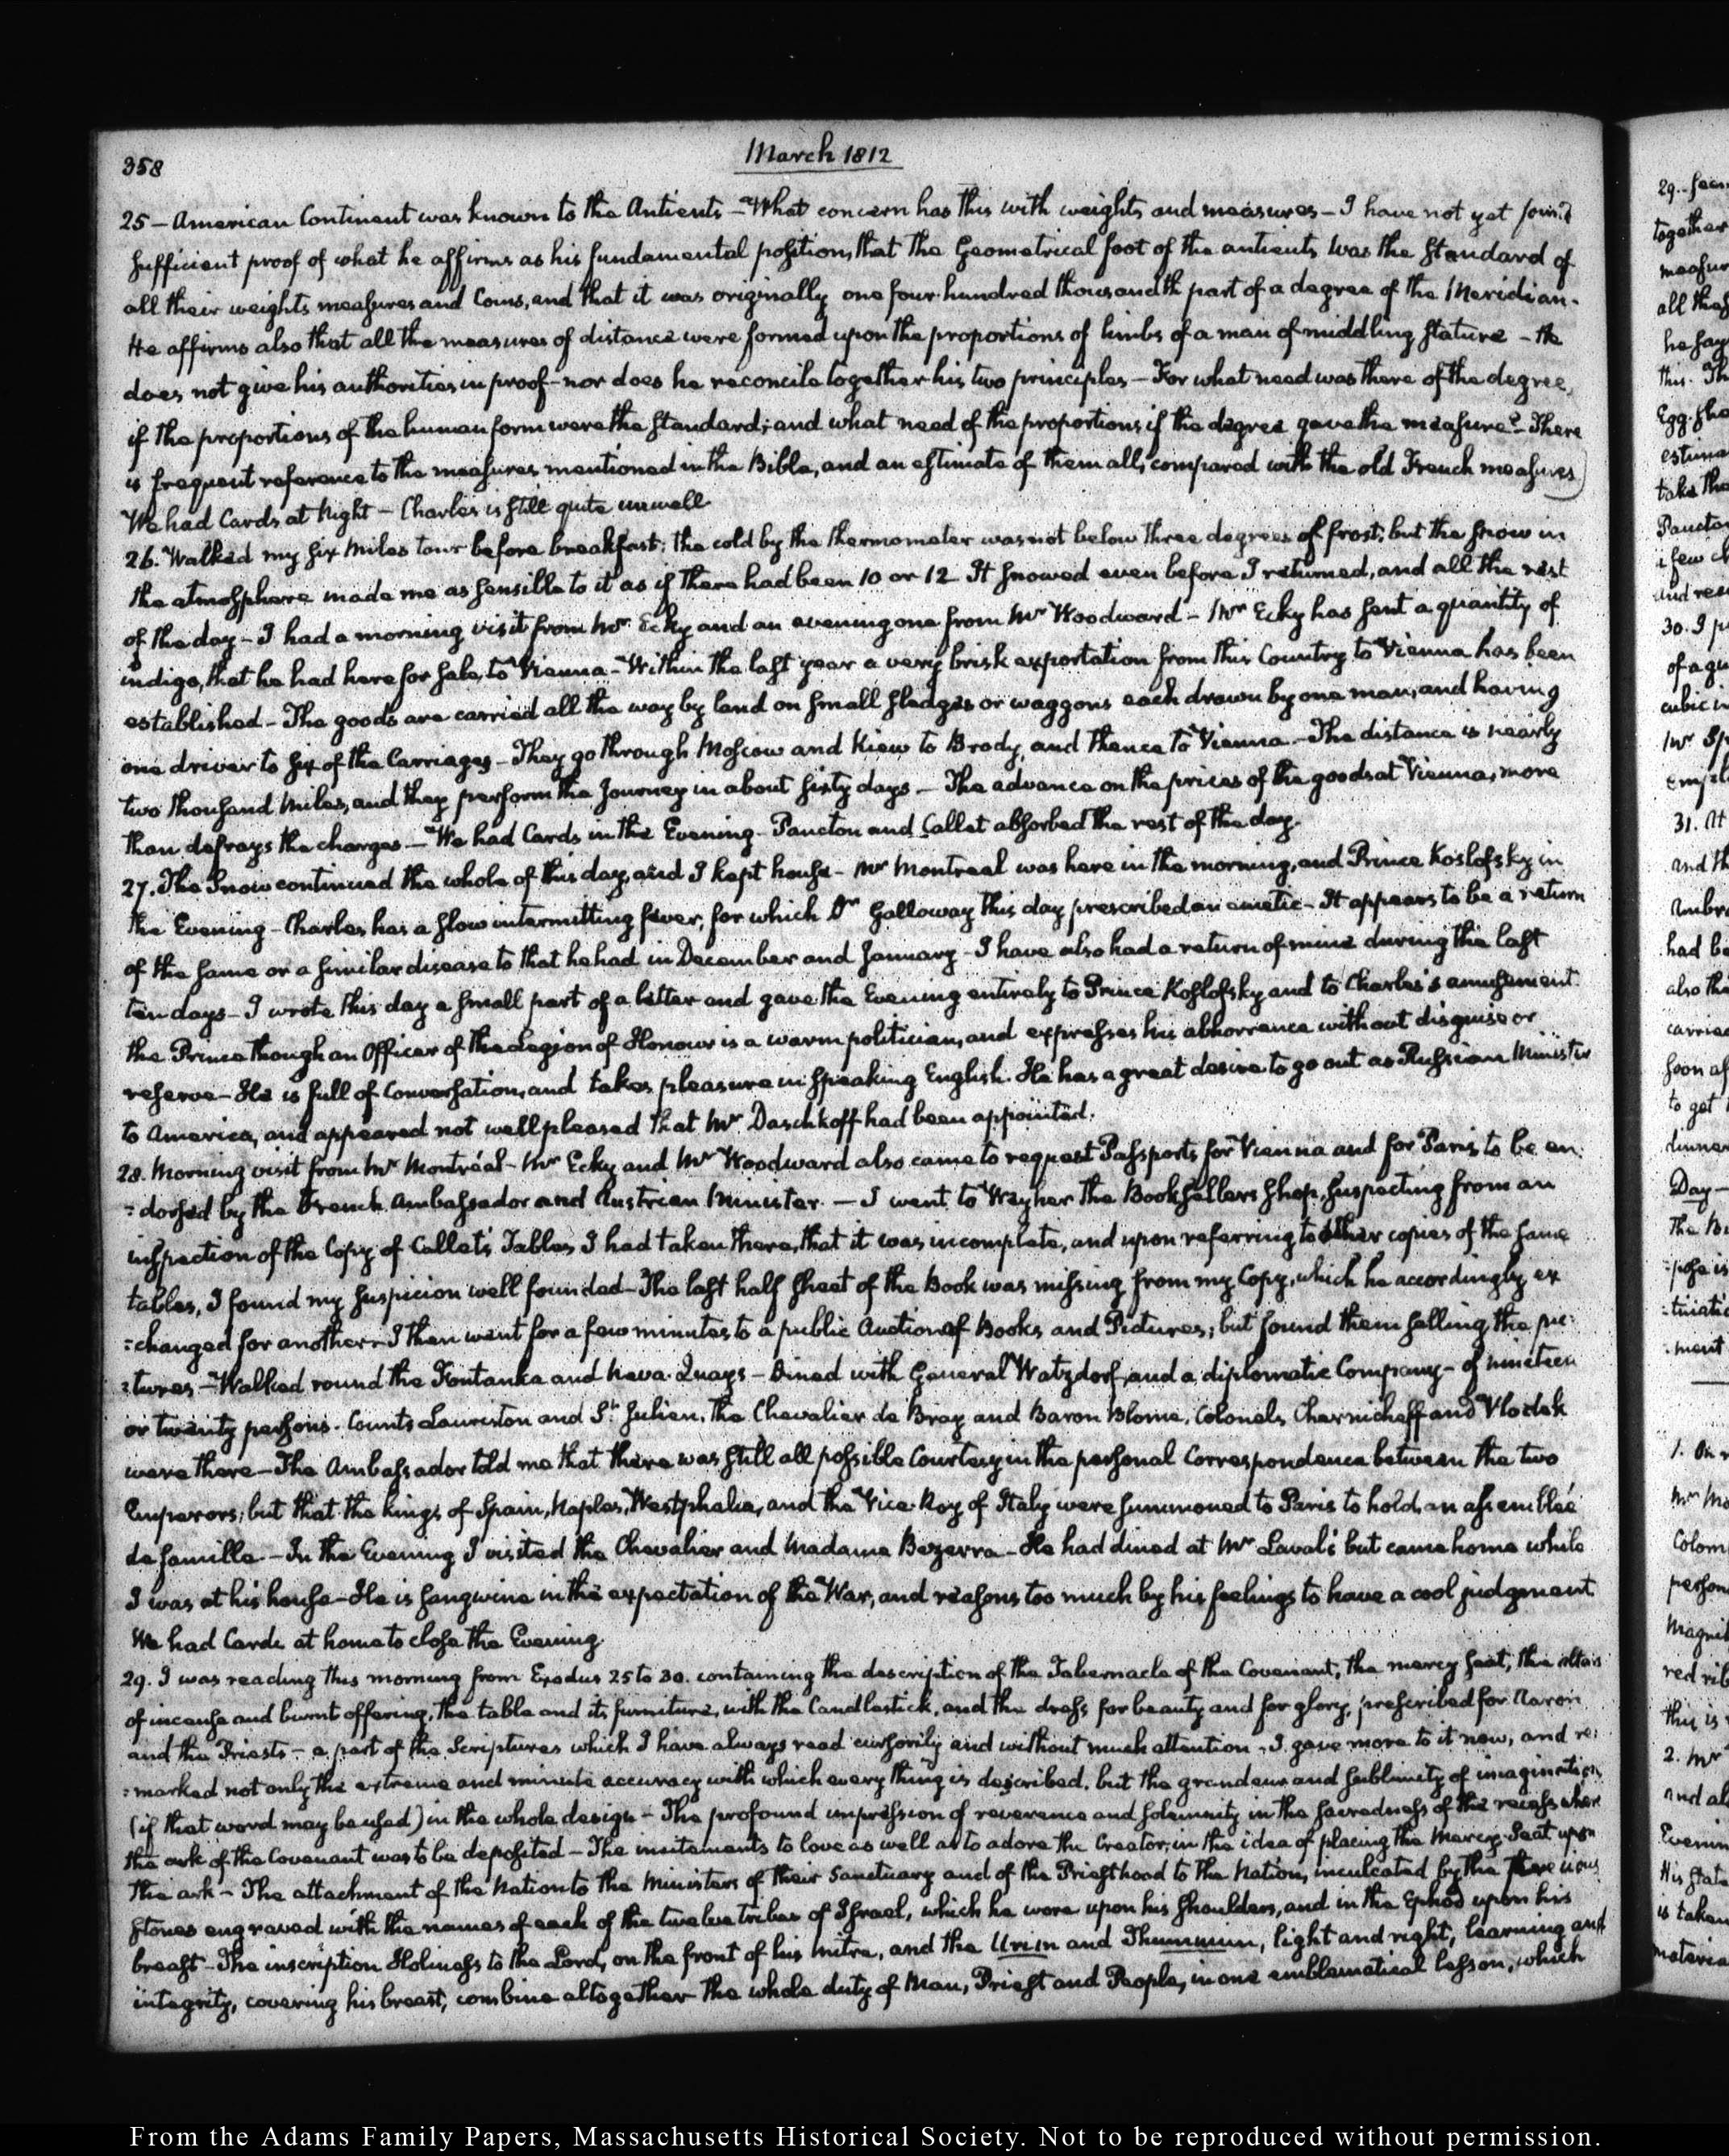 358
March 1812
25 - American Continent was known to the Antients - What concern has this with weights and measures - I have not yet found
sufficient proof of what he affirms as his fundamental position, that the Geometrical foot of the antients was the Standard of
all their weights measures and Coins, and that it was originally one four hundred thousandth part of a degree of the Meridian.
He affirms also that all the measures of distance were formed upon the proportions of limbs of a man of middling stature - He
does not give his authorities in proof - nor does he reconcile together his two principles - For what need was there of the degree,
if the proportions of the human form were the standard; and what need of the proportions, if the degree gave the measure? - There
is frequent reference to the measures mentioned in the Bible, and an estimate of them all, compared with the old French measures
We had Cards at Night - Charles is still quite unwell
26. Walked my six miles tour before breakfast; the cold by the thermometer was not below three degrees of frost; but the snow in
the atmosphere made me as sensible to it as if there had been 10 or 12. It snowed even before I returned, and all the rest
of the day - I had a morning visit from Mr Ecky and an evening one from Mr Woodward - Mr Ecky has sent a quantity of
indigo, that he had here for sale, to Vienna - Within the last year a very brisk exportation from this Country to Vienna has been
established - The goods are carried all the way by land on small sledges or waggons each drawn by one man, and having
one driver to six of the Carriages - They go through Moscow and Kiew to Brody, and thence to Vienna. - The distance is nearly
two thousand miles, and they perform the Journey in about sixty days - The advance on the prices of the goods at Vienna, more
than defrays the charges - We had Cards in the Evening - Paucton and Callet absorbed the rest of the day.
27. The Snow continued the whole of this day, and I kept house - Mr Montreal was here in the morning, and Prince Koslofsky in
the Evening - Charles has a slow intermitting fever, for which Dr Galloway this day prescribed an emetic - It appears to be a return
of the same or a similar disease to that he had in December and January - I have also had a return of mine during the last
ten days - I wrote this day a small part of a letter and gave the Evening entirely to Prince Koslofsky and to Charles's amusement.
the Prince though an Officer of the Legion of Honour is a warm politician, and expresses his abhorrence without disguise or
reserve - He is full of Conversation, and takes pleasure in speaking English. He has a great desire to go out as Russian Minister
to America, and appeared not well pleased that Mr Daschkoff had been appointed.
28. Morning visit from Mr Montréal - Mr Ecky and Mr Woodward also came to request Passports for Vienna and for Paris to be en:
:dorsed by the French Ambassador and Austrian Minister. - I went to Weyher the Booksellers shop, suspecting from an
inspection of the Copy of Callet's Tables I had taken there, that it was incomplete, and upon referring to other copies of the same
tables, I found my suspicion well founded - The last half sheet of the Book was missing from my Copy, which he accordingly ex
:changed for another - I then went for a few minutes to a public Auction of Books and Pictures; but found them selling the pic:
:tures - Walked round the Fontanka and Neva Quays - Dined with General Watzdorf, and a diplomatic Company - of nineteen
or twenty persons. Counts Lauriston and St. Julien, the Chevalier de Bray and Baron Blome, Colonels Chernicheff and Vlodek
were there - The Ambassador told me that there was still all possible Courtesy in the personal Correspondence between the two
Emperors; but that the kings of Spain, Naples, Westphalia, and the Vice-Roy of Italy were summoned to Paris to hold an assemblée
de famille. - In the Evening I visited the Chevalier and Madame Bezerra - He had dined at Mr Laval's but came home while
I was at his house - He is sanguine in the expectation of the War, and reasons too much by his feelings to have a cool judgment
We had Cards at home to close the Evening
29. I was reading this morning from Exodus 25 to 30. containing the description of the Tabernacle of the Covenant, the mercy seat, the altars
of incense and burnt offering, the table and its furniture, with the Candlestick, and the dress for beauty and for glory, prescribed for Aaron
and the Priests - a part of the Scriptures which I have always read cursorily and without much attention - I gave more to it now, and re:
:marked not only the extreme and minute accuracy with which every thing is described, but the grandeur and sublimity of imagination,
(if that word may be used) in the whole design - The profound impression of reverence and solemnity in the sacredness of the recess where
the ark of the Covenant was to be deposited - The incitements to love as well as to adore the Creator, in the idea of placing the Mercy-Seat upon
the ark - The attachment of the Nation to the Ministers of their Sanctuary and of the Priesthood to the Nation, inculcated by the
stones engraved with the names of each of the twelve tribes of Israel, which he wore upon his shoulders, and in the Ephod upon his
breast - The inscription Holiness to the Lord, on the front of his mitre, and the Urim and Thummim, light and right, learning and
integrity, covering his breast, combine altogether the whole duty of Man, Priest and People, in one emblematical lesson, which
From the Adams Family Papers, Massachusetts Historical Society. Not to be reproduced without permission.